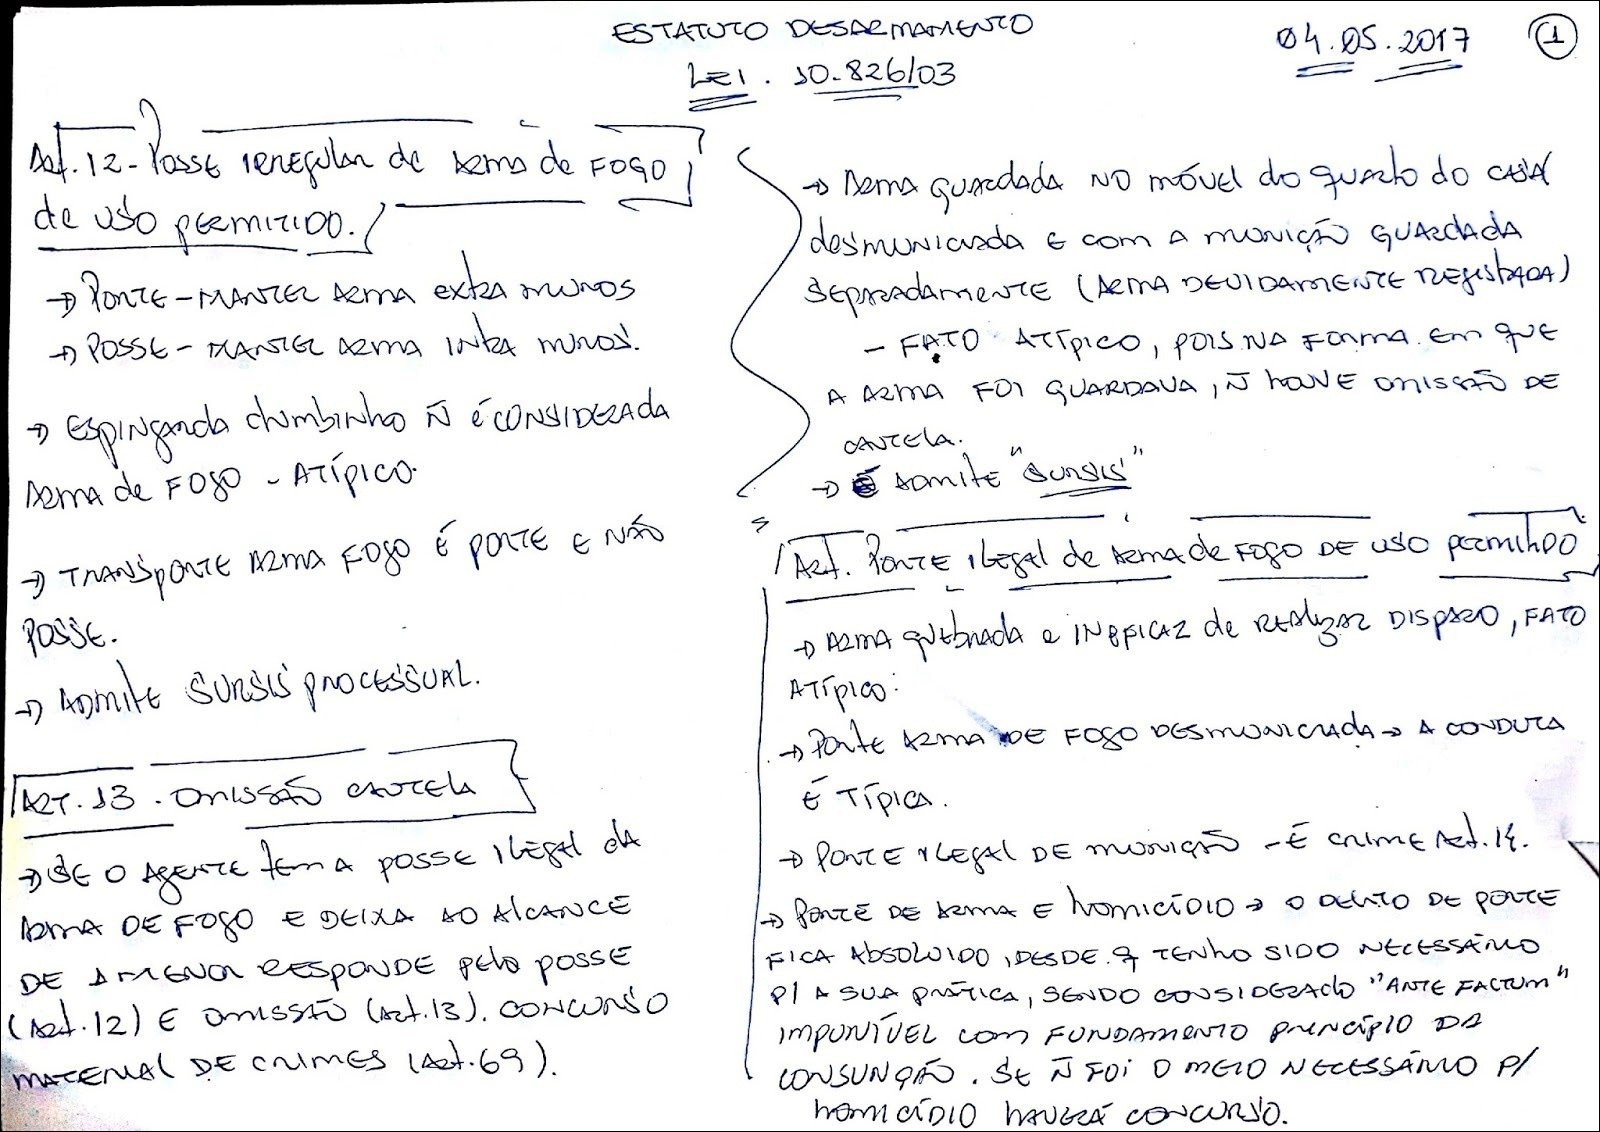 ESTATUTO DESARMAMENTO
LEI. 10.826/03
04.05.2017
1
Art. 12 - Posse irregular de arma de FOGO
de uso permitido.
→ Porte - manter arma extra muros
→ Posse - manter arma intra muros.
→ Espingarda chumbinho ñ é considerada
arma de FOGO - Atípico.
→ Transporte arma FOGO É porte e não
posse.
→ Admite sursis processual.
Art. 13 - omissão cautela
→ Se o agente tem a posse ilegal da
arma de FOGO e deixa ao alcance
de 1 menor responde pelo posse
(Art. 12) e omissão (Art. 13). Concurso
material de crimes (Art. 69).
→ Arma guardada no móvel do quarto do casa
desmuniciada e com a munição guardada
separadamente (arma devidamente registrada)
- FATO Atípico, pois na forma em que
a arma foi guardava, ñ houve omissão de
cautela.
→ É admite "sursis"
Art. Porte ilegal de arma de FOGO de uso permitido
→ Arma quebrada e ineficaz de realizar disparo, FATO
Atípico.
→ Porte arma de FOGO desmuniciada → a conduta
é típica.
→ Porte ilegal de munição - É crime Art. 14.
→ Porte de arma e homicídio → o delito de porte
fica absolvido, desde q tenho sido necessário
p/ a sua prática, sendo considerado "ante factum"
impunível com fundamento princípio da
consunção. Se ñ foi o meio necessário p/
homicídio haverá concurso.